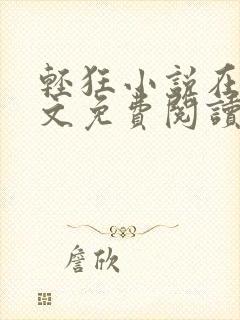 輕狂小說在
文免費閱讀
詹欣